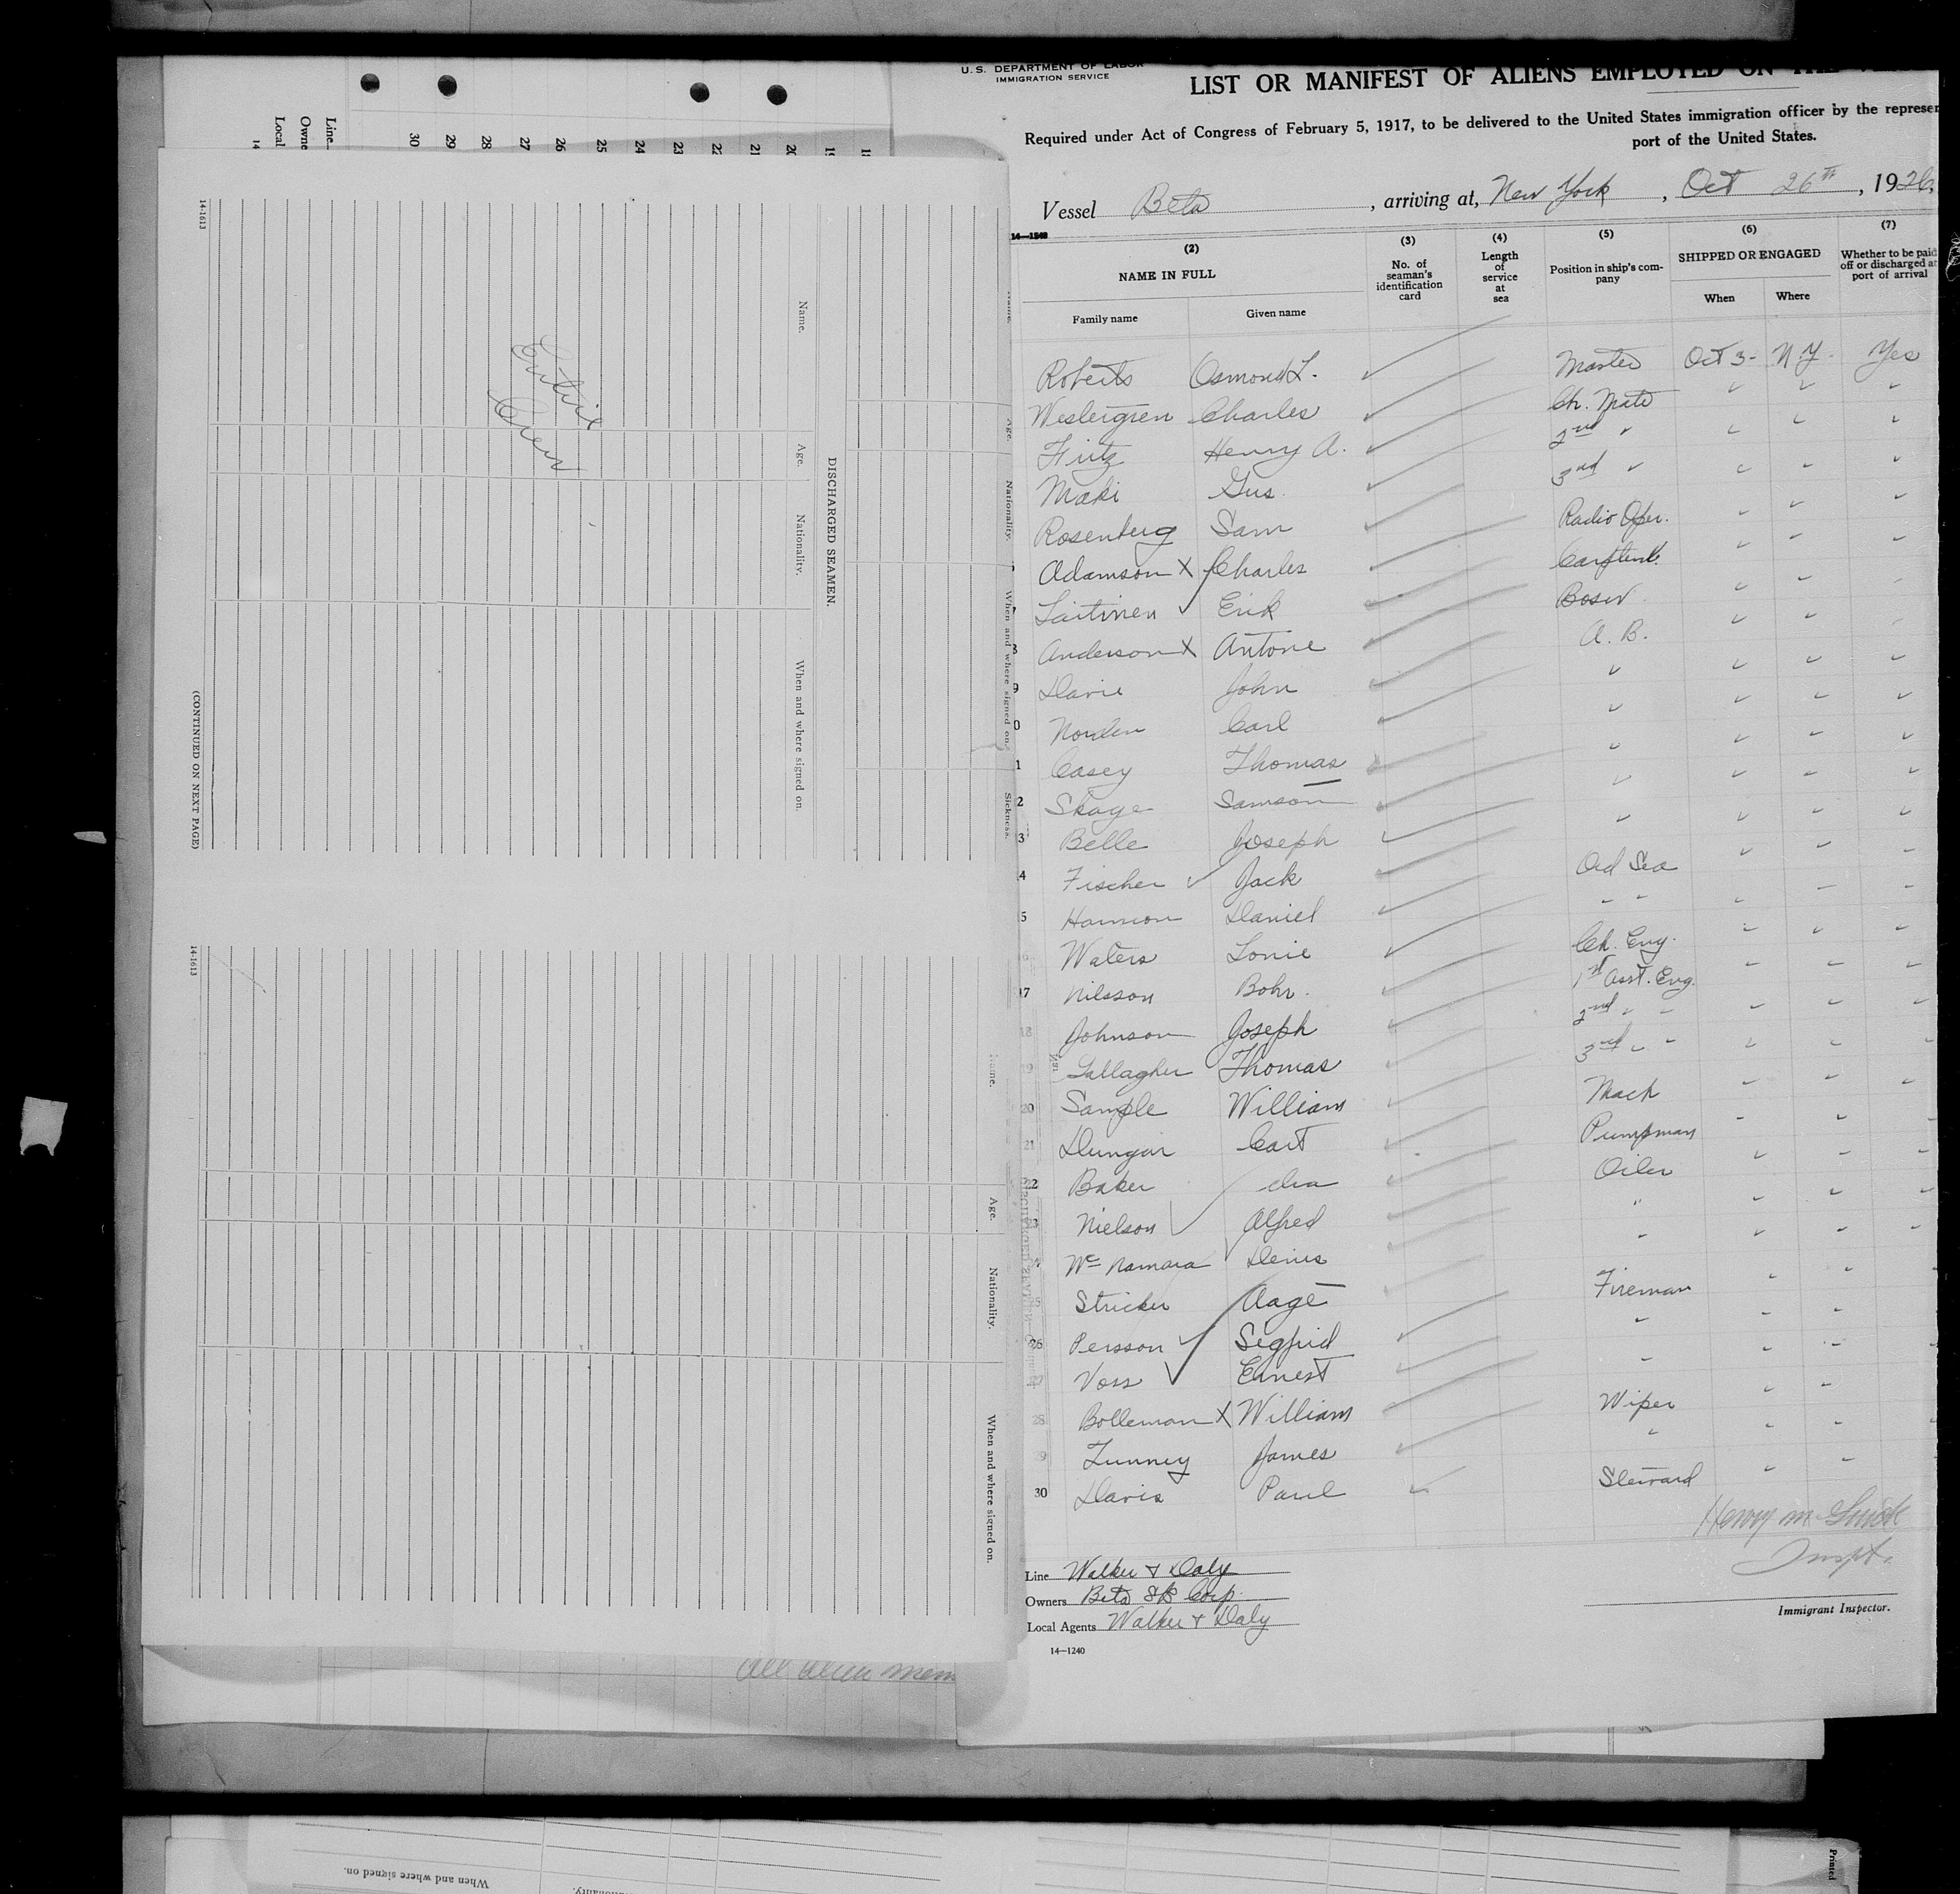 U. S. DEPARTMENT OF LABOR
IMMIGRATION SERVICE
LIST OR MANIFEST OF ALIENS EMPLOYED ON THE
Required under Act of Congress of February 5, 1917, to be delivered to the United States immigration officer by the represen
port of the United States.
Vessel Beta , arriving at, New York , Oct 26th , 1926,
14—1240
(2) (3) (4) (5) (6) (7)
NAME IN FULL No. of seaman's identification card Length of service at sea Position in ship's company SHIPPED OR ENGAGED Whether to be paid off or discharged at port of arrival
Family name Given name When Where
Roberts Osmond L. Master Oct 3- N.Y. Yes
Westergren Charles Ch. Mate
Fritz Henry A. 2nd "
Maki Gus. 3rd "
Rosenberg Sam Radio Oper.
Adamson X Charles Carpent.
7 Laitinen Erik Bosn
8 Anderson X Antone A. B.
9 Davis John "
0 Norden Carl "
1 Casey Thomas "
2 Skage Samson "
3 Belle Joseph "
4 Fischer Jack Ord Sea
5 Daniel " "
16 Waters Lonie Ch. Eng.
17 Nilsson Bohr. 1st Asst. Eng.
18 Johnson Joseph 2nd " "
19 Gallagher Thomas 3rd " "
20 Sample William Mach
21 Dungan Cart Pumpman
22 Baker Ira Oiler
23 Nielson Alfred "
Mc Namara Denis "
25 Stricker Aage Fireman
26 Persson Segfrid "
27 Voss Ernest "
28 Bolleman X William Wiper
29 Tunney James "
30 Davis Paul Steward
Henry M.
Inspt.
Line Walker & Daly
Owners Beta S/S Corp.
Local Agents Walker & Daly
Immigrant Inspector.
14—1240
Line
Owne
Local
14
30 29 28 27 26 25 24 23 22 21 20 19 18
14-1613
Name. Age. Nationality. When and where signed on.
DISCHARGED SEAMEN.
Entire
Crew
(CONTINUED ON NEXT PAGE)
Name. Age. Nationality. When and where signed on. Sickness.
14-1613
Name. Age. Nationality. When and where signed on.
All alien mem
When and where signed on.
Printed